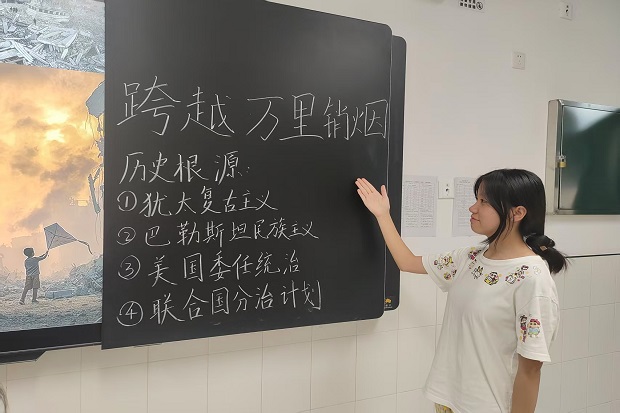 跨越万里销烟
历史根源:
①犹太复古主义
②巴勒斯坦民族主义
③美国委任统治
④联合国分治计划